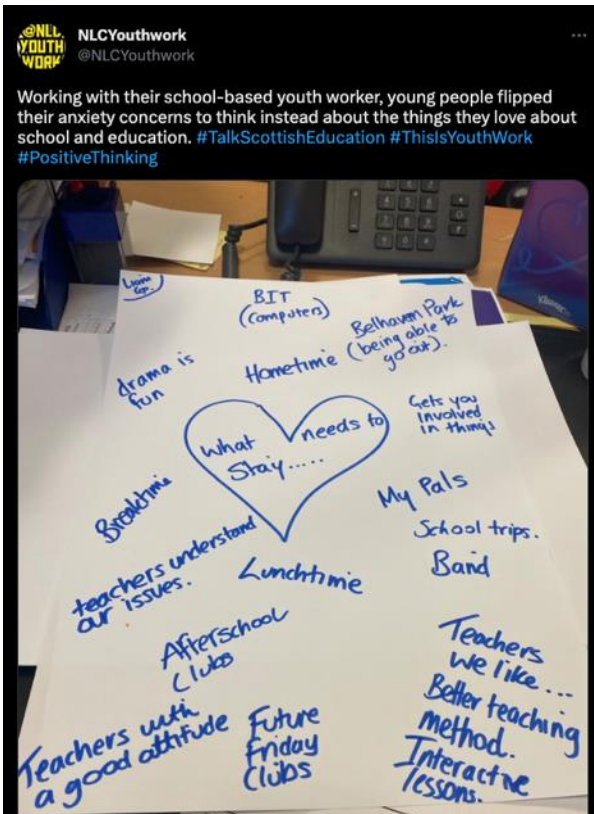 @NLC
YOUTH
WORK
NLCYouthwork
@NLCYouthwork
Working with their school-based youth worker, young people flipped
their anxiety concerns to think instead about the things they love about
school and education. #TalkScottishEducation #ThisIsYouthWork
#PositiveThinking
BIT
(computers)
Belhaven Park
(being able to
go out).
Hometime
drama is
fun
Gets you
involved
in things
What needs to
Stay.....
Breaktime
My Pals
School trips.
Band
teachers understand
our issues.
Lunchtime
Afterschool
Clubs
Teachers
we like...
Better teaching
method.
Interactive
lessons.
Teachers with
a good attitude
Future
Friday
Clubs